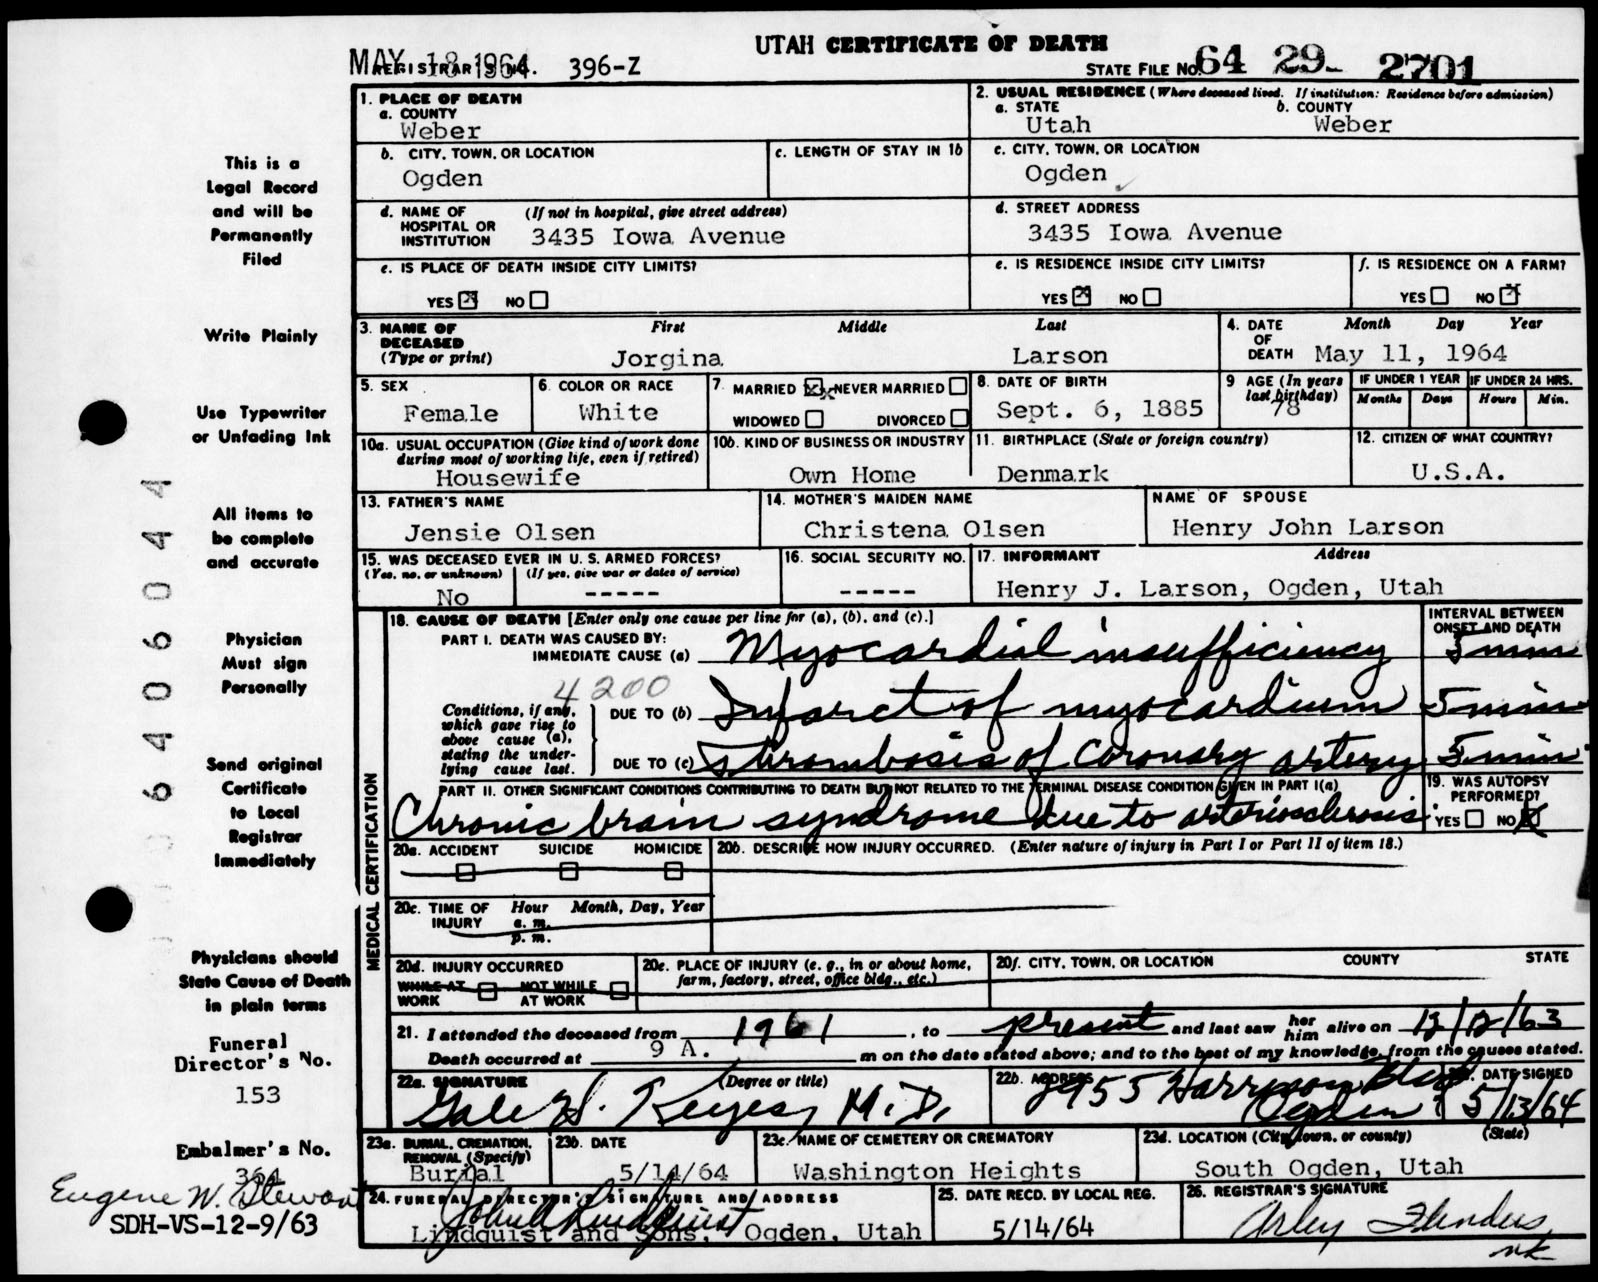 UTAH CERTIFICATE OF DEATH
MAY 18 1964 396-Z STATE FILE NO. 64 29- 2701
1. PLACE OF DEATH
a. COUNTY
Weber
2. USUAL RESIDENCE (Where deceased lived. If institution: Residence before admission)
a. STATE b. COUNTY
Utah Weber
b. CITY, TOWN, OR LOCATION
Ogden
c. LENGTH OF STAY IN 1b
c. CITY, TOWN, OR LOCATION
Ogden
d. NAME OF HOSPITAL OR INSTITUTION (If not in hospital, give street address)
3435 Iowa Avenue
d. STREET ADDRESS
3435 Iowa Avenue
e. IS PLACE OF DEATH INSIDE CITY LIMITS?
YES NO
e. IS RESIDENCE INSIDE CITY LIMITS?
YES NO
f. IS RESIDENCE ON A FARM?
YES NO
3. NAME OF DECEASED (Type or print) First Middle Last
Jorgina Larson
4. DATE OF DEATH Month Day Year
May 11, 1964
5. SEX
Female
6. COLOR OR RACE
White
7. MARRIED NEVER MARRIED
WIDOWED DIVORCED
8. DATE OF BIRTH
Sept. 6, 1885
9 AGE (In years last birthday)
78
IF UNDER 1 YEAR IF UNDER 24 HRS.
Months Days Hours Min.
10a. USUAL OCCUPATION (Give kind of work done during most of working life, even if retired)
Housewife
10b. KIND OF BUSINESS OR INDUSTRY
Own Home
11. BIRTHPLACE (State or foreign country)
Denmark
12. CITIZEN OF WHAT COUNTRY?
U.S.A.
13. FATHER'S NAME
Jensie Olsen
14. MOTHER'S MAIDEN NAME
Christena Olsen
NAME OF SPOUSE
Henry John Larson
15. WAS DECEASED EVER IN U. S. ARMED FORCES?
(Yes, no, or unknown) (If yes, give war or dates of service)
No -----
16. SOCIAL SECURITY NO.
-----
17. INFORMANT Address
Henry J. Larson, Ogden, Utah
18. CAUSE OF DEATH [Enter only one cause per line for (a), (b), and (c).]
INTERVAL BETWEEN ONSET AND DEATH
PART I. DEATH WAS CAUSED BY:
IMMEDIATE CAUSE (a) Myocardial insufficiency 5 min
4200
Conditions, if any, which gave rise to above cause (a), stating the underlying cause last.
DUE TO (b) Infarct of myocardium 5 min
DUE TO (c) Thrombosis of coronary artery 5 min
PART II. OTHER SIGNIFICANT CONDITIONS CONTRIBUTING TO DEATH BUT NOT RELATED TO THE TERMINAL DISEASE CONDITION GIVEN IN PART I(a)
Chronic brain syndrome due to arteriosclerosis
19. WAS AUTOPSY PERFORMED?
YES NO
MEDICAL CERTIFICATION
20a. ACCIDENT SUICIDE HOMICIDE
20b. DESCRIBE HOW INJURY OCCURRED. (Enter nature of injury in Part I or Part II of item 18.)
20c. TIME OF INJURY Hour Month, Day, Year
a. m.
p. m.
20d. INJURY OCCURRED
WHILE AT WORK NOT WHILE AT WORK
20e. PLACE OF INJURY (e. g., in or about home, farm, factory, street, office bldg., etc.)
20f. CITY, TOWN, OR LOCATION COUNTY STATE
21. I attended the deceased from 1961, to present and last saw her him alive on 12/12/63
Death occurred at 9 A. m on the date stated above; and to the best of my knowledge, from the causes stated.
22a. SIGNATURE (Degree or title)
Gale H. Keyes, M.D.
22b. ADDRESS
2955 Harrison Blvd
Ogden
DATE SIGNED
5/13/64
23a. BURIAL, CREMATION, REMOVAL (Specify)
Burial
23b. DATE
5/14/64
23c. NAME OF CEMETERY OR CREMATORY
Washington Heights
23d. LOCATION (City, town, or county) (State)
South Ogden, Utah
24. FUNERAL DIRECTOR'S SIGNATURE AND ADDRESS
John A Lindquist
Lindquist and Sons, Ogden, Utah
25. DATE RECD. BY LOCAL REG.
5/14/64
26. REGISTRAR'S SIGNATURE
Arley Flinders
nk
This is a
Legal Record
and will be
Permanently
Filed
Write Plainly
Use Typewriter
or Unfading Ink
All items to
be complete
and accurate
Physician
Must sign
Personally
Send original
Certificate
to Local
Registrar
Immediately
Physicians should
State Cause of Death
in plain terms
Funeral
Director's No.
153
Embalmer's No.
364
Eugene W. Stewart
SDH-VS-12-9/63
6406044